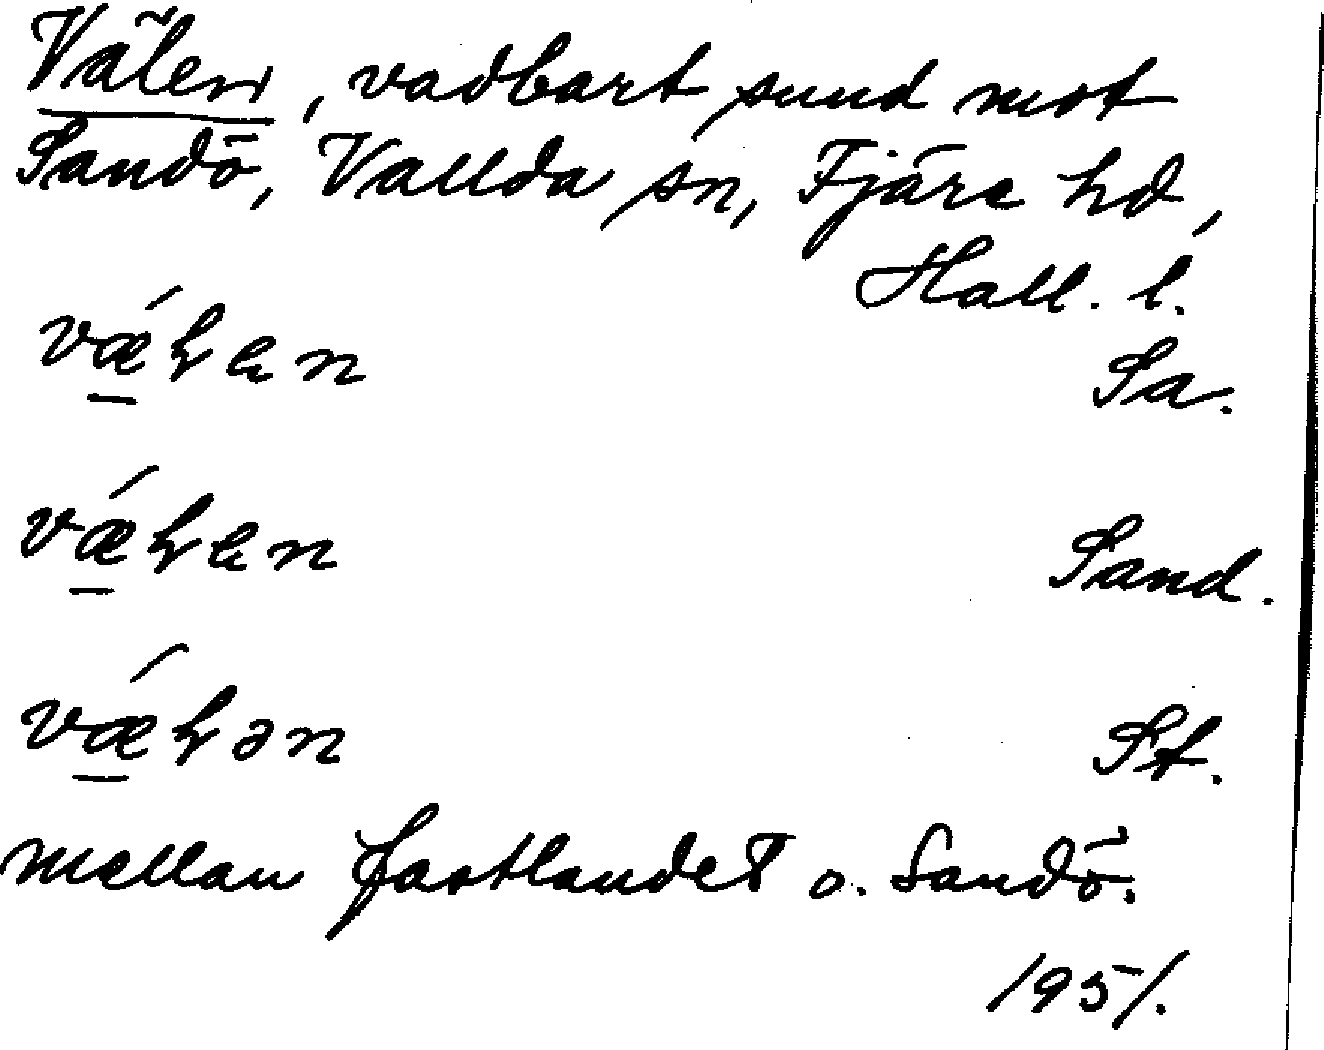 Välen, vadbart sund mot
Sandö, Vallda sn, Fjäre hd,
Hall. l.
vǽ̠ɫen Sa.
vǽ̠ɫen Sand.
vǽ̠ɫən St.
mellan fastlandet o. Sandö.
1951.